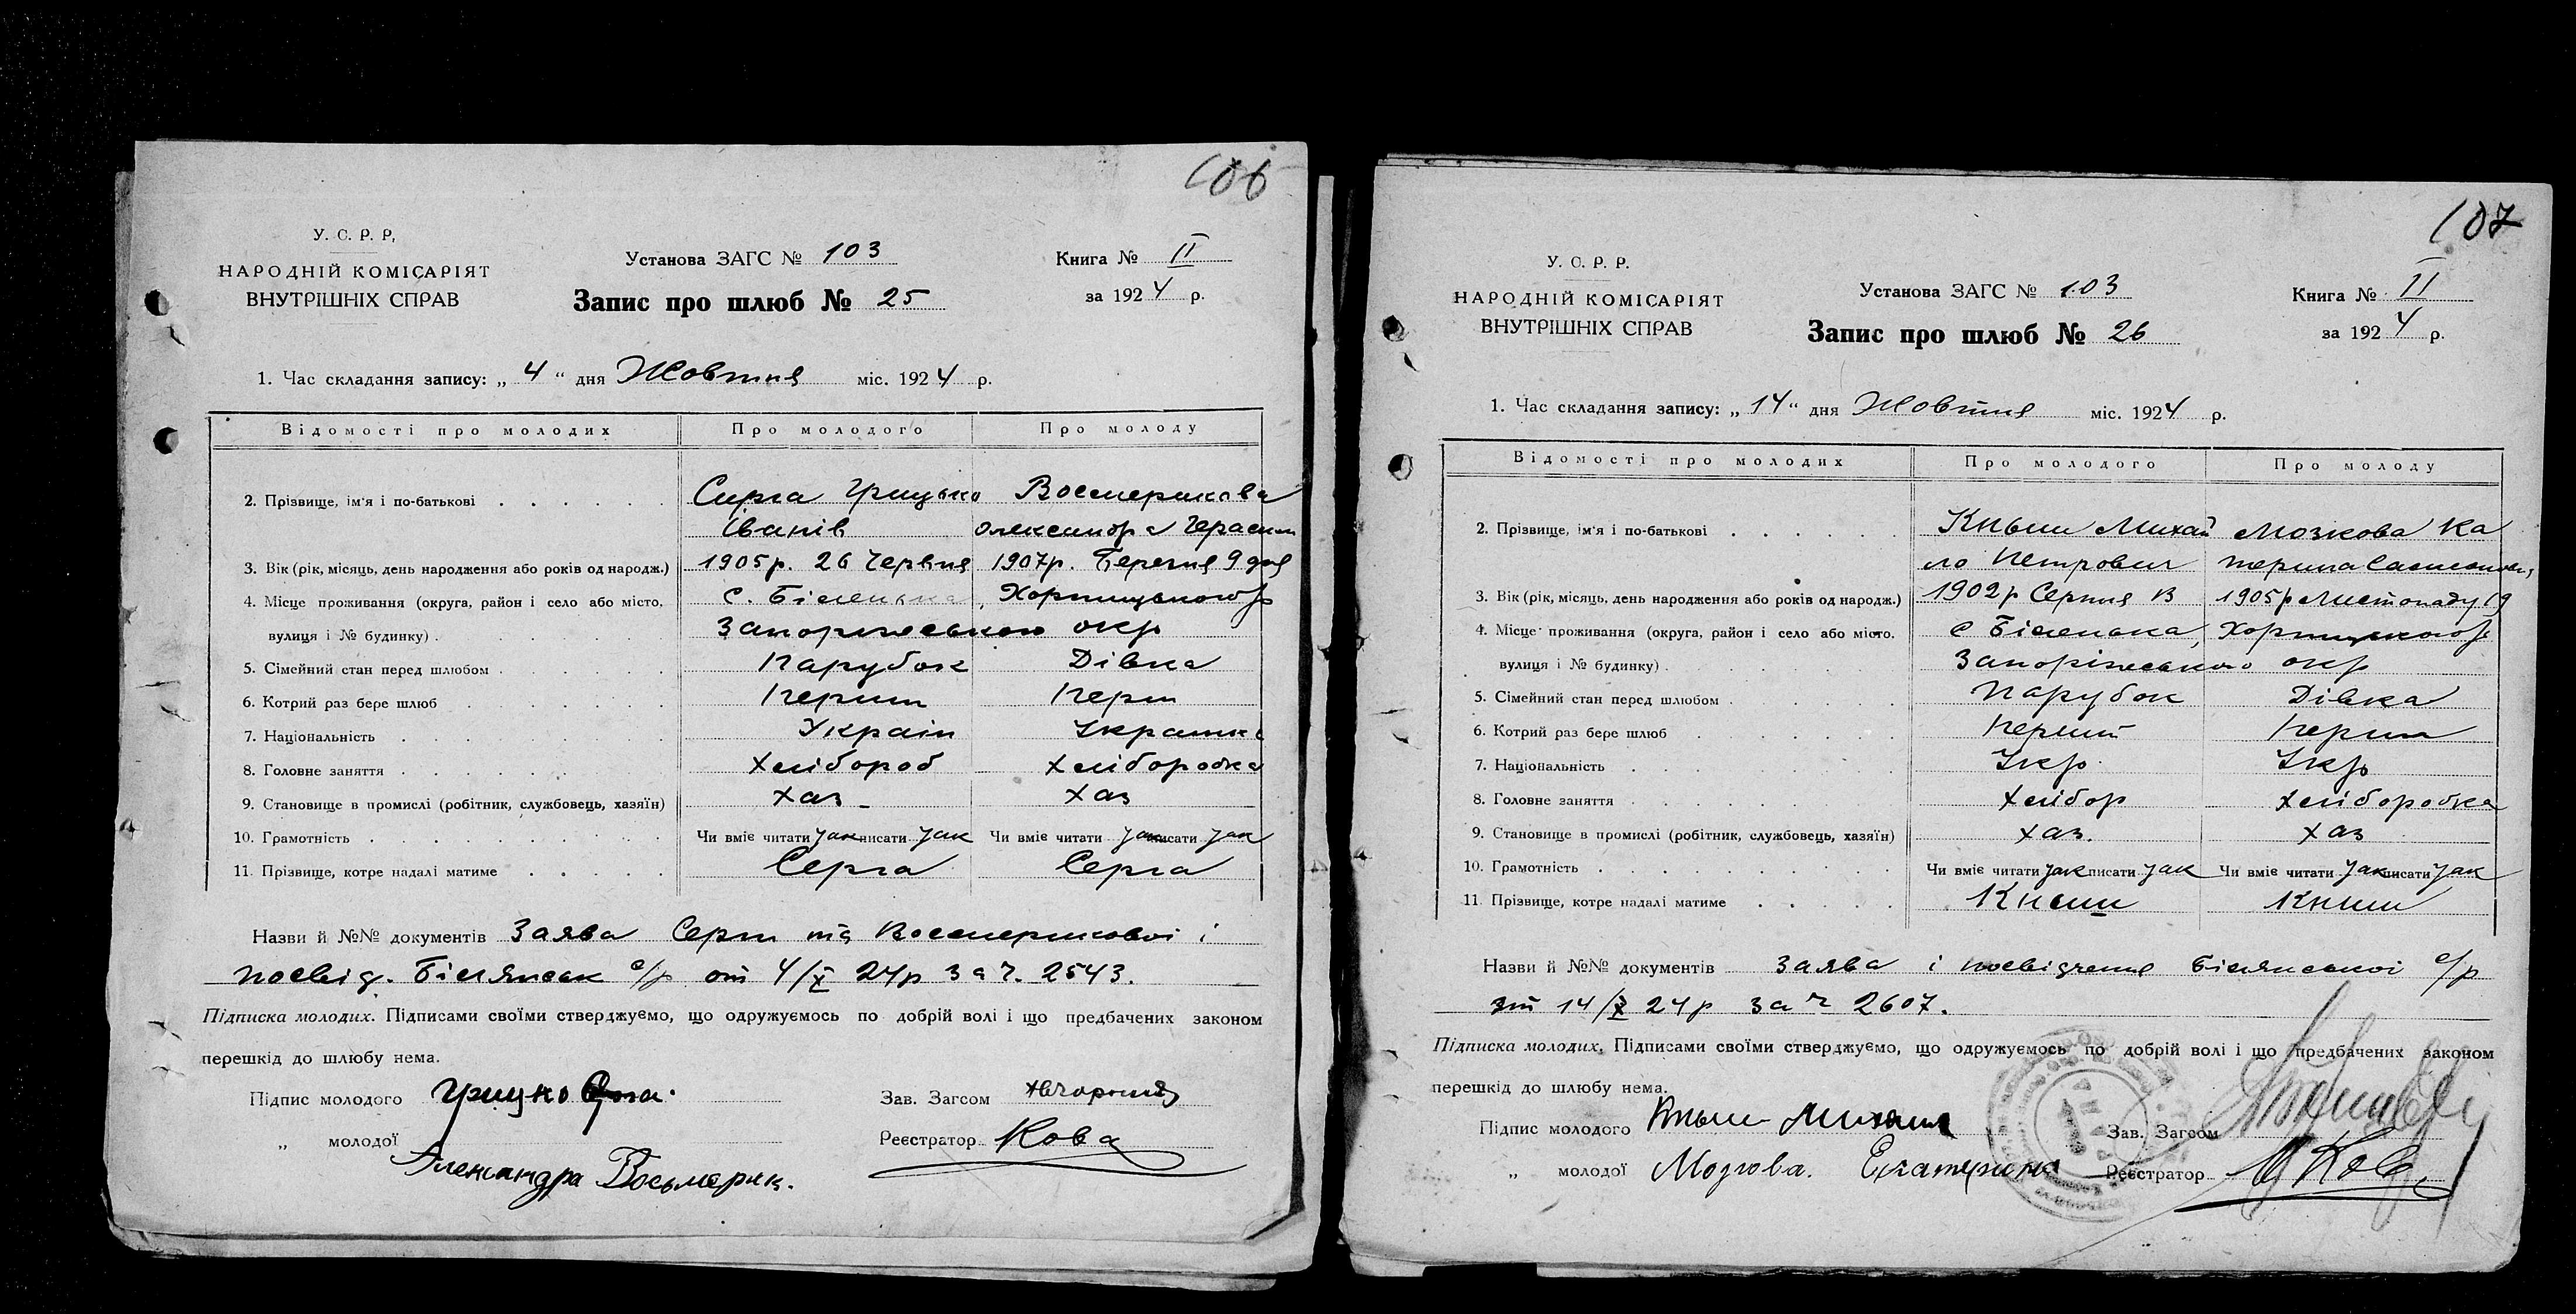 106
У. С. Р. Р.
НАРОДНІЙ КОМІСАРІЯТ
ВНУТРІШНІХ СПРАВ
Установа ЗАГС № 103
Запис про шлюб № 25
Книга № II
за 1924 р.
1. Час складання запису: „ 4 “ дня Жовтня міс. 1924 р.
Відомості про молодих Про молодого Про молоду
2. Прізвище, ім'я і по-батькові Грицько Восмерикова
Іванів Олександра Герасим
3. Вік (рік, місяць, день народження або років од народж.) 1905р. 26 Червня 1907р. Березня 9 дня
4. Місце проживання (округа, район і село або місто, с. Біленька, Хортицького р
вулиця і № будинку) Запоріжського окр
5. Сімейний стан перед шлюбом Парубок Дівка
6. Котрий раз бере шлюб перший перш
7. Національність Україн Украинка
8. Головне заняття хлібороб хліборобка
9. Становище в промислі (робітник, службовець, хазяїн) хаз хаз
10. Грамотність Чи вміє читати так писати так Чи вміє читати так писати так
11. Прізвище, котре надалі матиме Серга Серга
Назви й №№ документів Заява Серги та Восмерикової і
посвід. Білянськ с/р от 4/X 24р за ч. 2543.
Підписка молодих. Підписами своїми стверджуємо, що одружуємось по добрій волі і що предбачених законом
перешкід до шлюбу нема.
Підпис молодого Грицко
Зав. Загсом
„ молодої Александра Восьмерик.
Реєстратор Кова
107
У. С. Р. Р.
НАРОДНІЙ КОМІСАРІЯТ
ВНУТРІШНІХ СПРАВ
Установа ЗАГС № 103
Запис про шлюб № 26
Книга № II
за 1924 р.
1. Час складання запису: „ 14 “ дня Жовтня міс. 1924 р.
Відомості про молодих Про молодого Про молоду
2. Прізвище, ім'я і по-батькові Кныш Михай Мозкова Ка
ло Петрович терина
3. Вік (рік, місяць, день народження або років од народж.) 1902р Серпня 1905р Листопаду 19
4. Місце проживання (округа, район і село або місто, с Біленька, Хортицького р
вулиця і № будинку) Запоріжського окр
5. Сімейний стан перед шлюбом Парубок Дівка
6. Котрий раз бере шлюб перший перша
7. Національність Укр Укр
8. Головне заняття хлібор хліборобка
9. Становище в промислі (робітник, службовець, хазяїн) хаз. хаз
10. Грамотність Чи вміє читати так писати так Чи вміє читати так писати так
11. Прізвище, котре надалі матиме Кныш Кныш
Назви й №№ документів Заява і посвідчення Білянської с/р
від 14/X 24р за ч 2607.
Підписка молодих. Підписами своїми стверджуємо, що одружуємось по добрій волі і що предбачених законом
перешкід до шлюбу нема.
Підпис молодого Кныш Михаил
Зав. Загсом
„ молодої Мозгова. Екатерина
Реєстратор